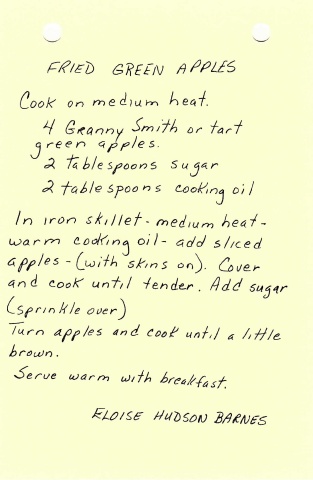 FRIED GREEN APPLES
Cook on medium heat.
4 Granny Smith or tart
green apples.
2 tablespoons sugar
2 tablespoons cooking oil
In iron skillet - medium heat -
warm cooking oil - add sliced
apples - (with skins on). Cover
and cook until tender. Add sugar
(sprinkle over)
Turn apples and cook until a little
brown.
Serve warm with breakfast.
ELOISE HUDSON BARNES